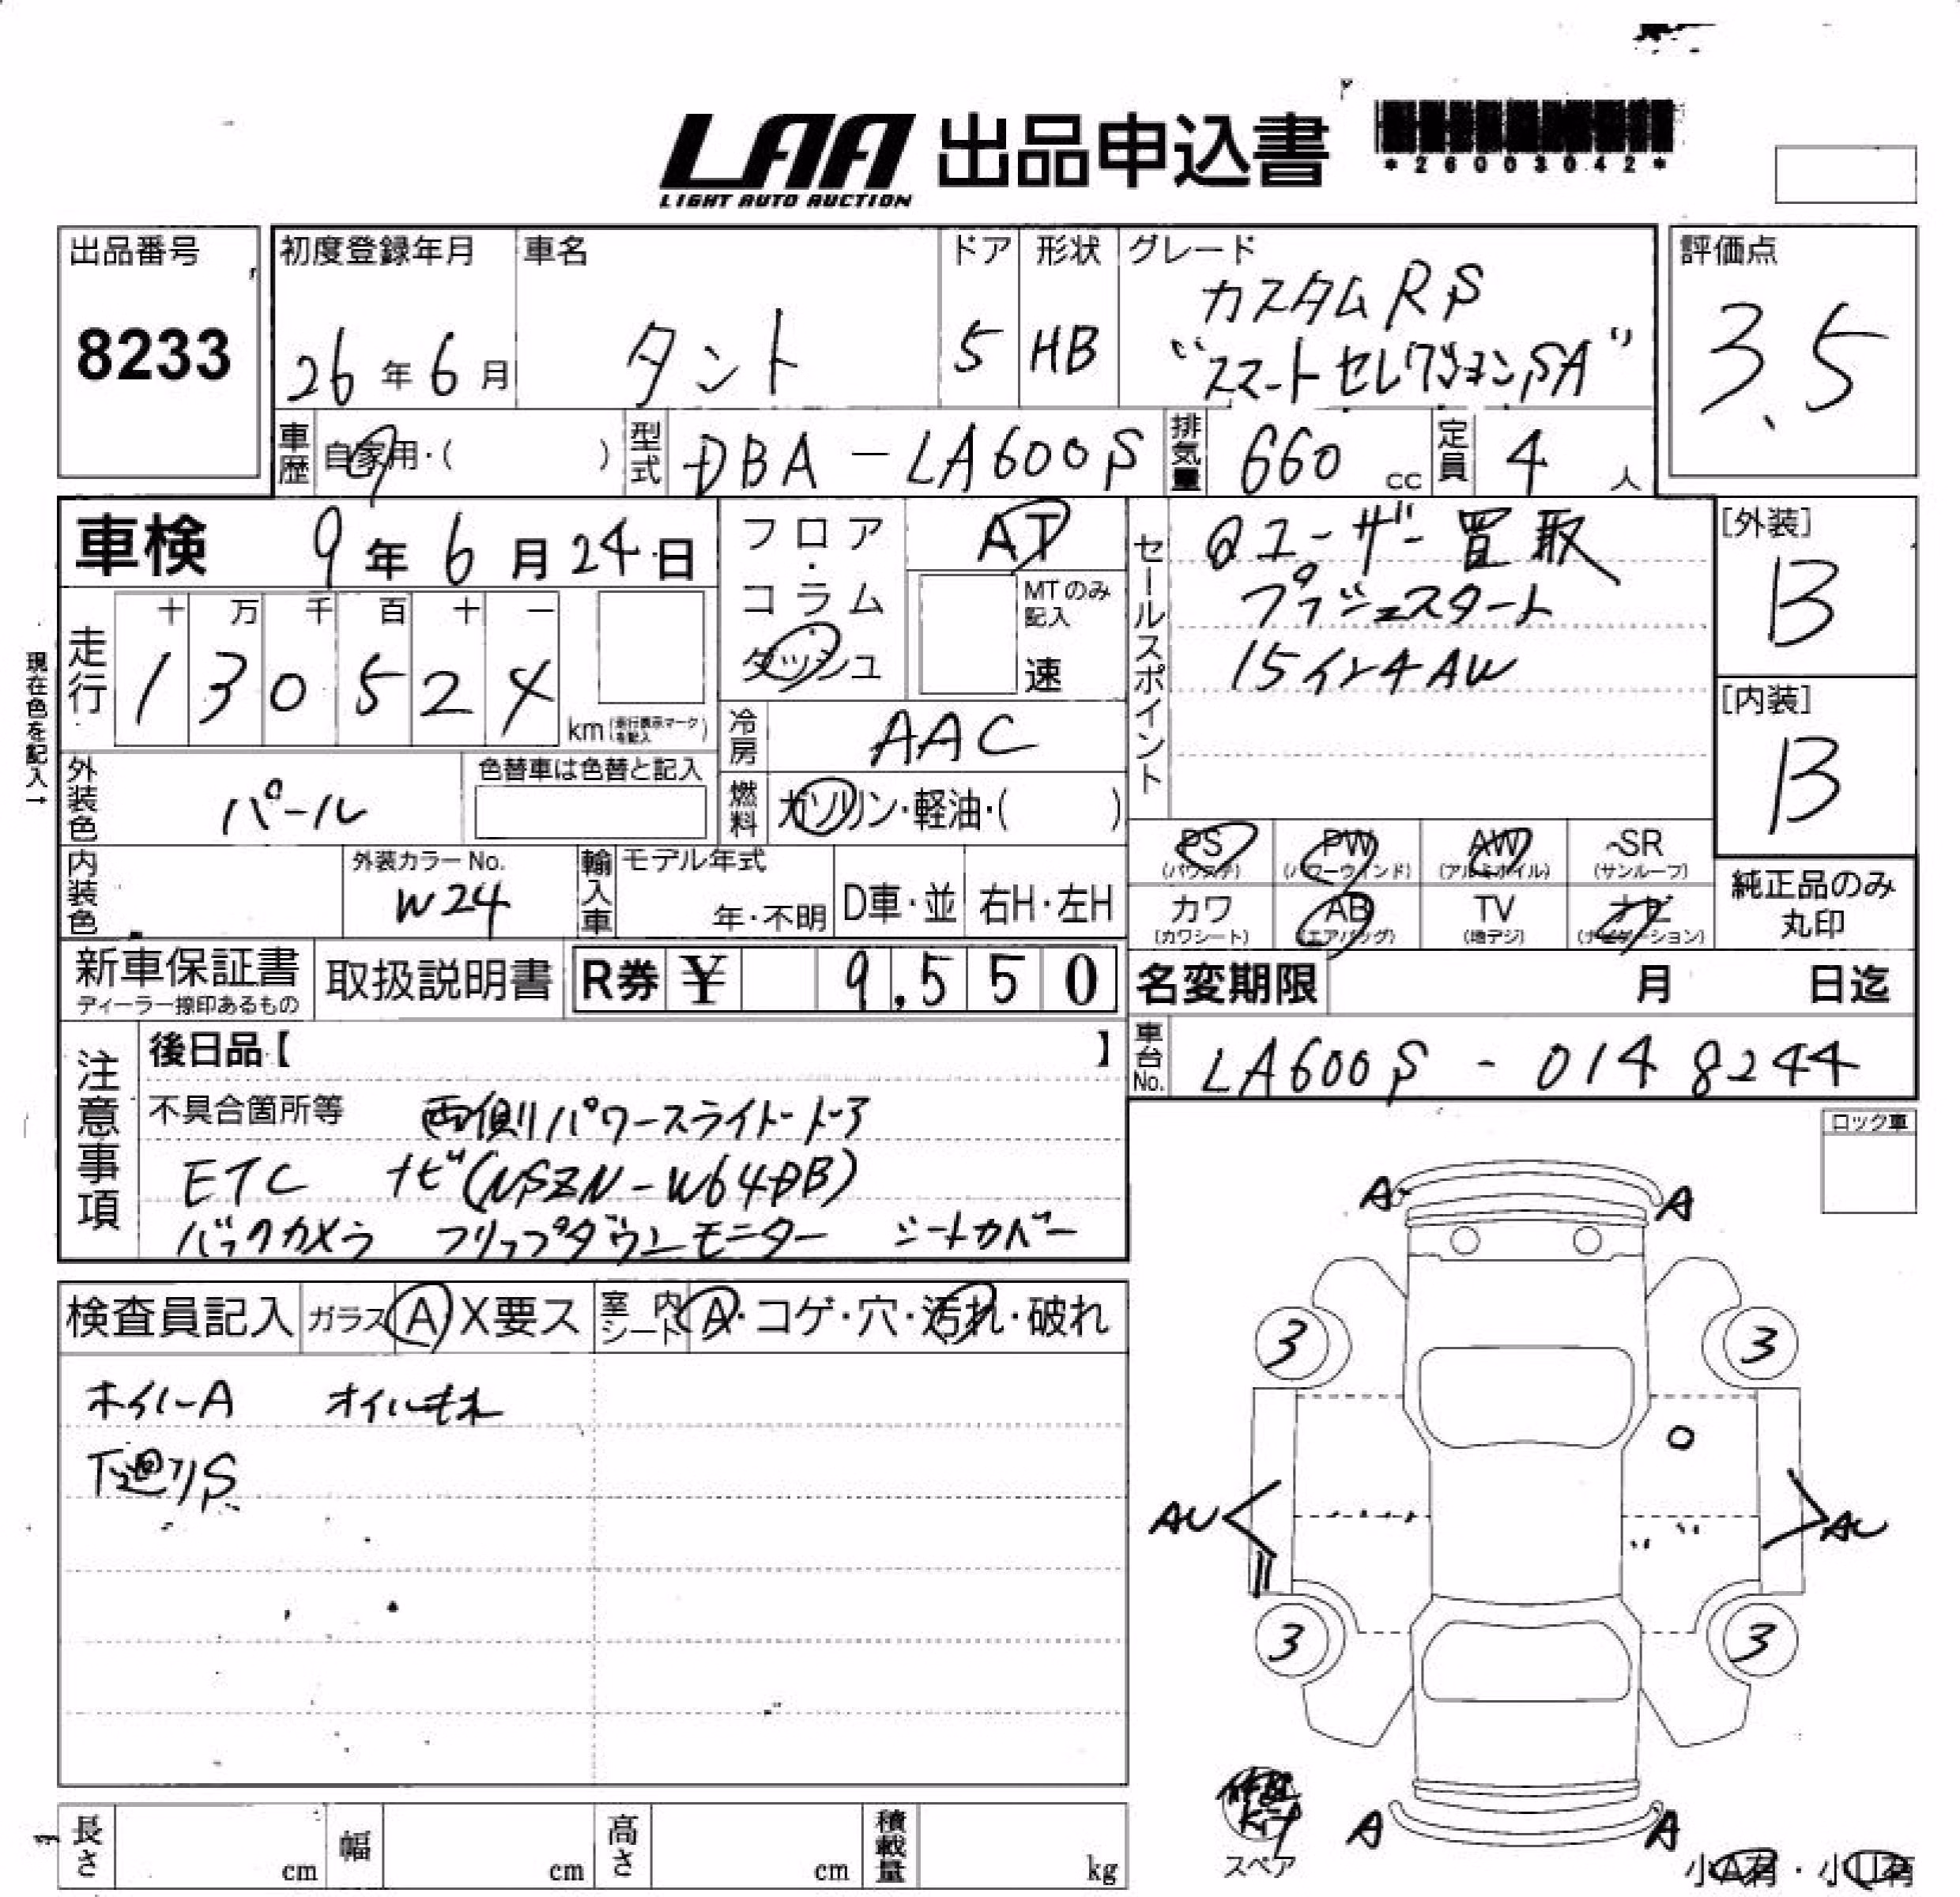 LAA 出品申込書
LIGHT AUTO AUCTION
*26003042*
出品番号
8233
初度登録年月
26年6月
車名
タント
ドア
5
形状
HB
グレード
カスタムRS
"スマートセレクションSA"
評価点
3.5
車歴
自家用・( )
型式
DBA-LA600S
排気量
660 cc
定員
4人
車検 9年6月24日
走行
十 万 千 百 十 一
1 3 0 5 2 4
km(走行表示マークを記入)
現在色を記入→
フロア・コラム
ダッシュ
AT
MTのみ記入
速
冷房
AAC
燃料
ガソリン・軽油・( )
セールスポイント
ユーザー買取
プッシュスタート
15インチAW
[外装]
B
[内装]
B
外装色
パール
色替車は色替と記入
内装色
外装カラーNo.
W24
輸入車
モデル年式
年・不明
D車・並
右H・左H
PS
(パワステ)
PW
(パワーウインド)
AW
(アルミホイル)
SR
(サンルーフ)
カワ
(カワシート)
AB
(エアバッグ)
TV
(地デジ)
ナビ
(ナビゲーション)
純正品のみ
丸印
新車保証書
ディーラー捺印あるもの
取扱説明書
R券 ¥ 9,550
名変期限 月 日迄
車台No.
LA600S-0148244
注意事項
後日品【 】
不具合箇所等 両側パワースライドドア
ETC ナビ(NSZN-W64DB)
バックカメラ フリップダウンモニター シートカバー
ロック車
検査員記入
ガラス A X要ス
室内シート A・コゲ・穴・汚れ・破れ
ホイルA オイルモれ
下廻りS
A A
3 3
AU AU
3 3
A A
スペア
小A有・小U有
長さ cm
幅 cm
高さ cm
積載量 kg